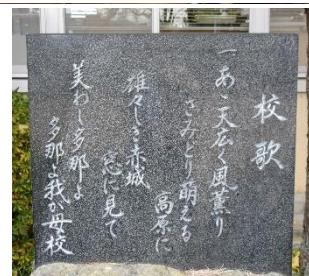 校歌
一 あゝ天広く風薫り
さみどり萌える高原に
雄々しき赤城窓に見て
美わし多那よ
多那よ我が母校